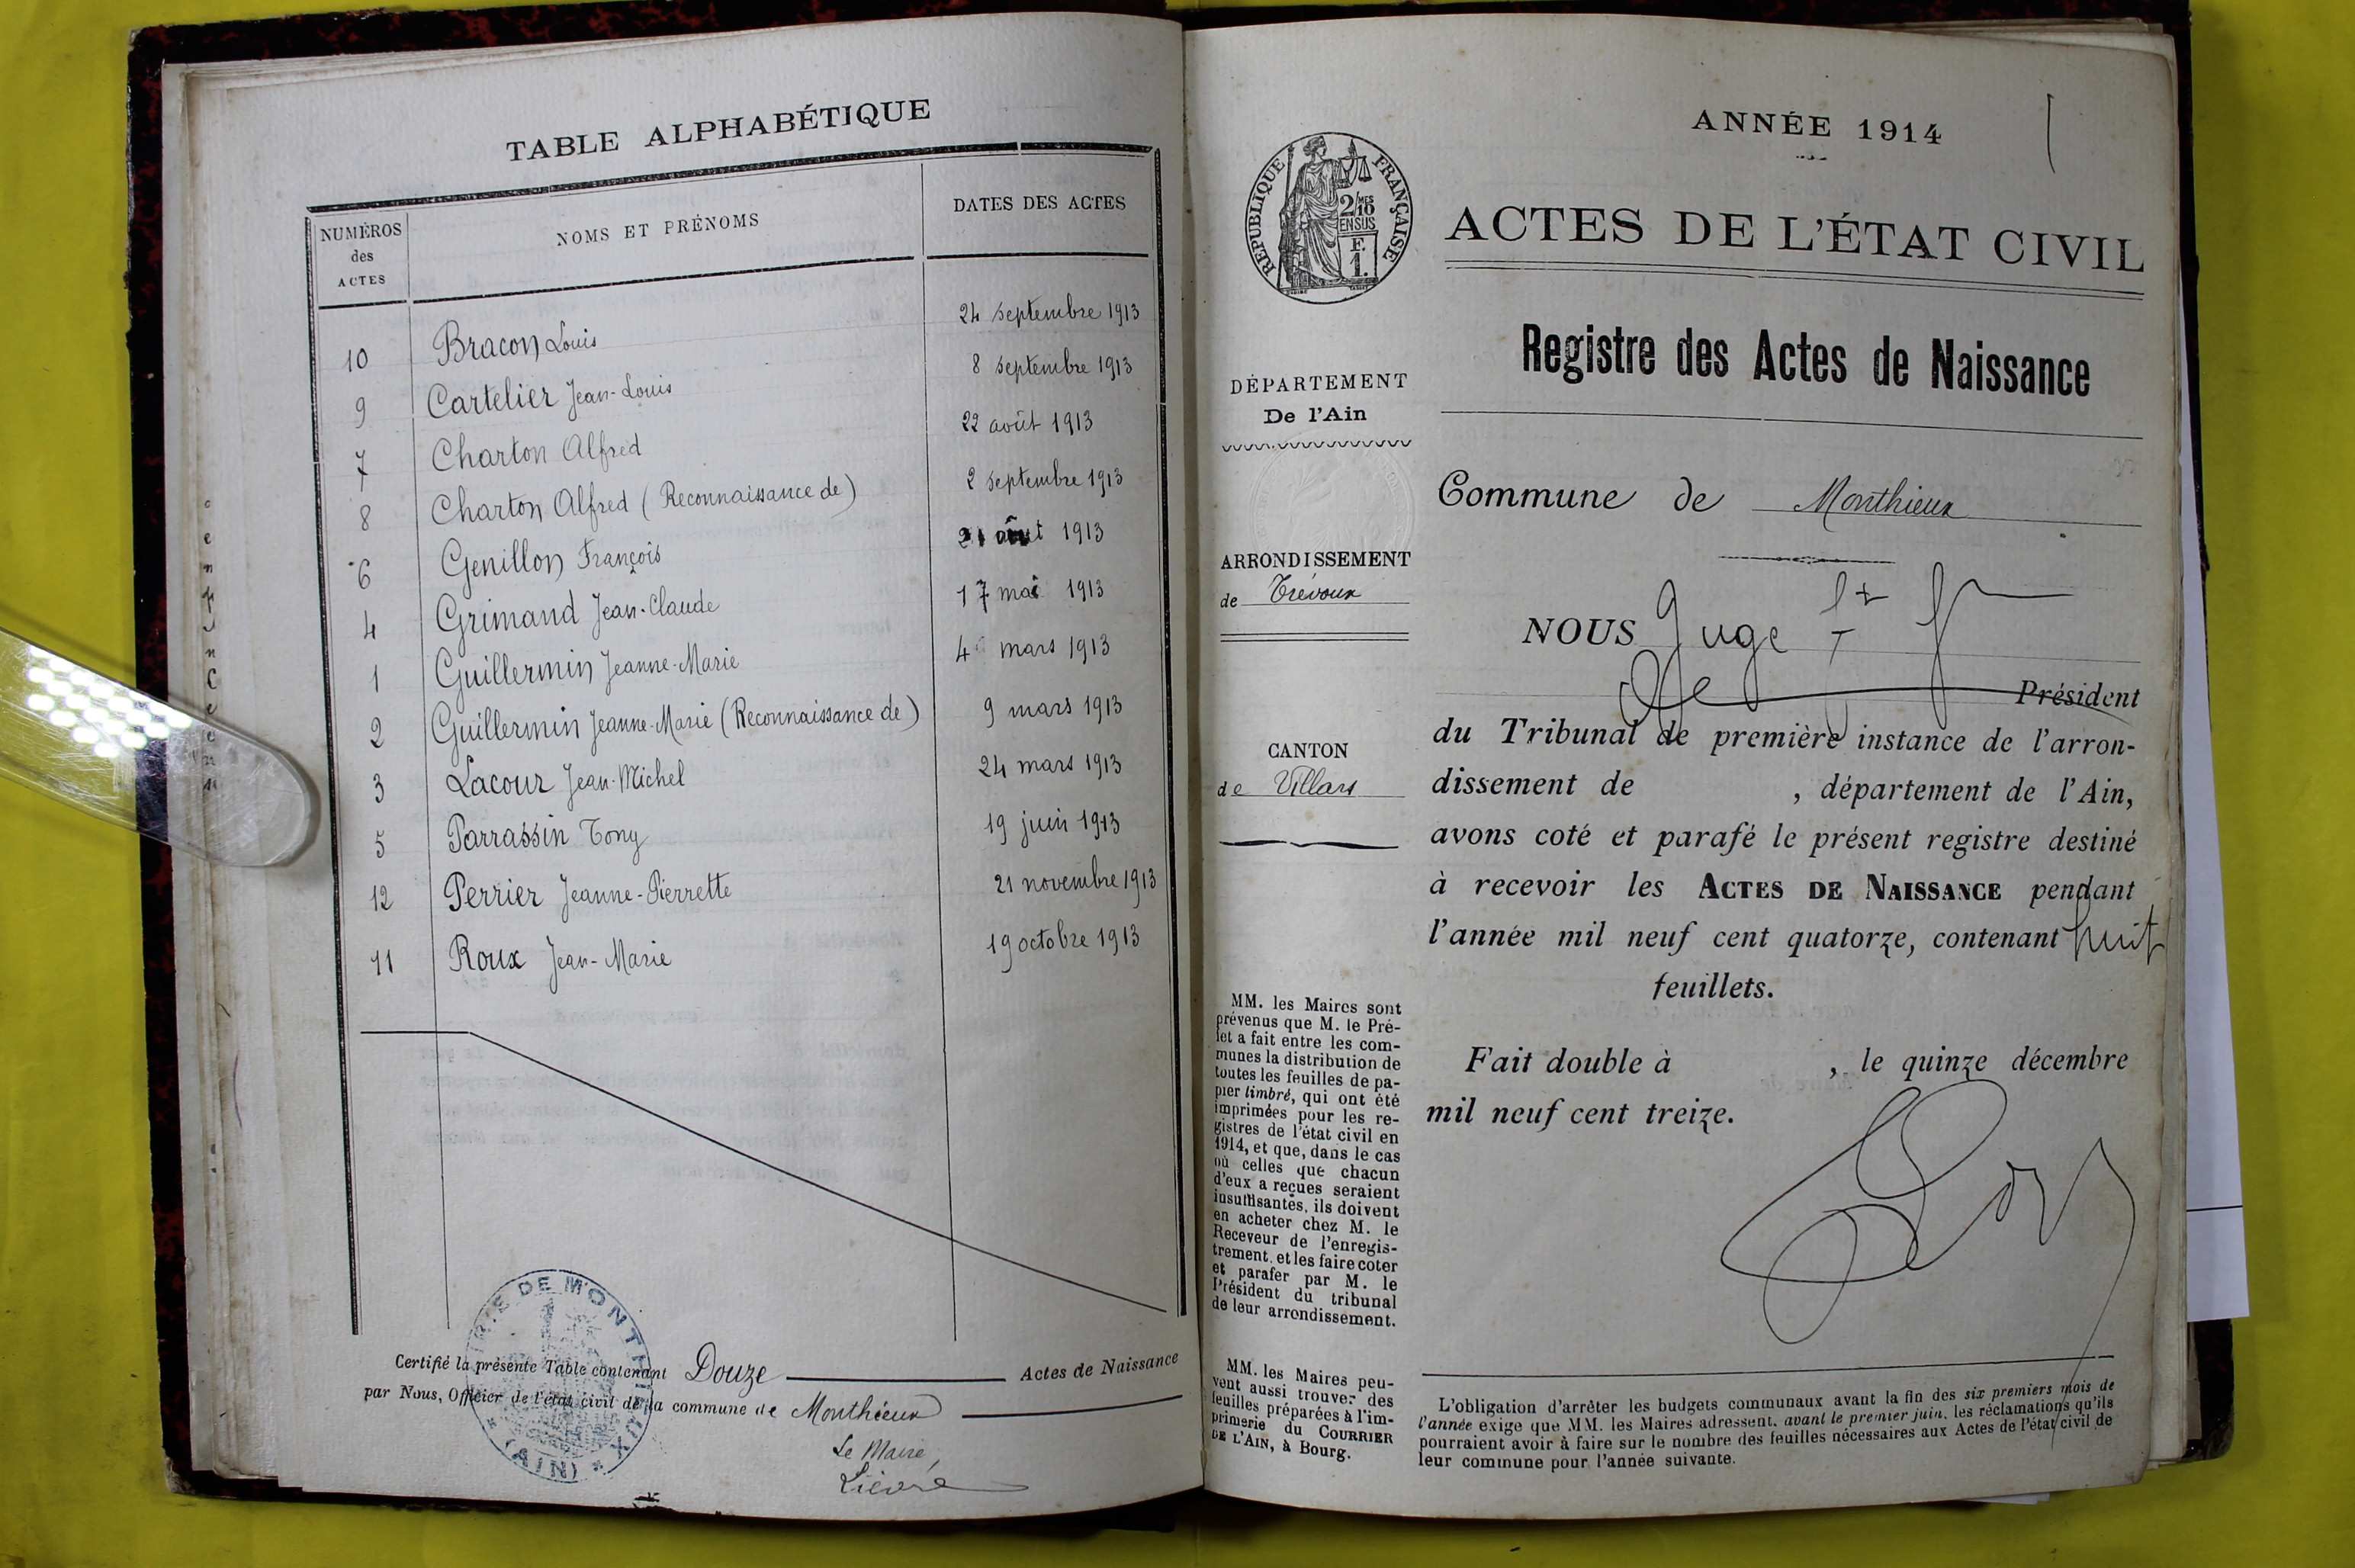 TABLE ALPHABÉTIQUE
NUMÉROS des ACTES
NOMS ET PRÉNOMS
DATES DES ACTES
10 Bracon Louis 24 septembre 1913
9 Cartelier Jean-Louis 8 septembre 1913
7 Charton Alfred 22 août 1913
8 Charton Alfred (Reconnaissance de) 2 septembre 1913
6 Genillon François 21 août 1913
4 Grimand Jean-Claude 17 mai 1913
1 Guillermin Jeanne-Marie 4 mars 1913
2 Guillermin Jeanne-Marie (Reconnaissance de) 9 mars 1913
3 Lacour Jean-Michel 24 mars 1913
5 Parrassin Tony 19 juin 1913
12 Perrier Jeanne-Pierrette 21 novembre 1913
11 Roux Jean-Marie 19 octobre 1913
Certifié la présente Table contenant Douze Actes de Naissance
par Nous, Officier de l'état civil de la commune de Monthieux
Le Maire,
Lièvre
ANNÉE 1914
RÉPUBLIQUE FRANÇAISE
2/10 MES
EN SUS
F.
1.
ACTES DE L'ÉTAT CIVIL
Registre des Actes de Naissance
DÉPARTEMENT
De l'Ain
ARRONDISSEMENT
de Trévoux
CANTON
de Villars
MM. les Maires sont
prévenus que M. le Pré-
fet a fait entre les com-
munes la distribution de
toutes les feuilles de pa-
pier timbré, qui ont été
imprimées pour les re-
gistres de l'état civil en
1914, et que, dans le cas
où celles que chacun
d'eux a reçues seraient
insuffisantes, ils doivent
en acheter chez M. le
Receveur de l'enregis-
trement, et les faire coter
et parafer par M. le
Président du tribunal
de leur arrondissement.
MM. les Maires peu-
vent aussi trouver des
feuilles préparées à l'im-
primerie du COURRIER
DE L'AIN, à Bourg.
Commune de Monthieux
NOUS Juge
Président
du Tribunal de première instance de l'arron-
dissement de , département de l'Ain,
avons coté et parafé le présent registre destiné
à recevoir les ACTES DE NAISSANCE pendant
l'année mil neuf cent quatorze, contenant huit
feuillets.
Fait double à , le quinze décembre
mil neuf cent treize.
L'obligation d'arrêter les budgets communaux avant la fin des six premiers mois de
l'année exige que MM. les Maires adressent, avant le premier juin, les réclamations qu'ils
pourraient avoir à faire sur le nombre des feuilles nécessaires aux Actes de l'état civil de
leur commune pour l'année suivante.